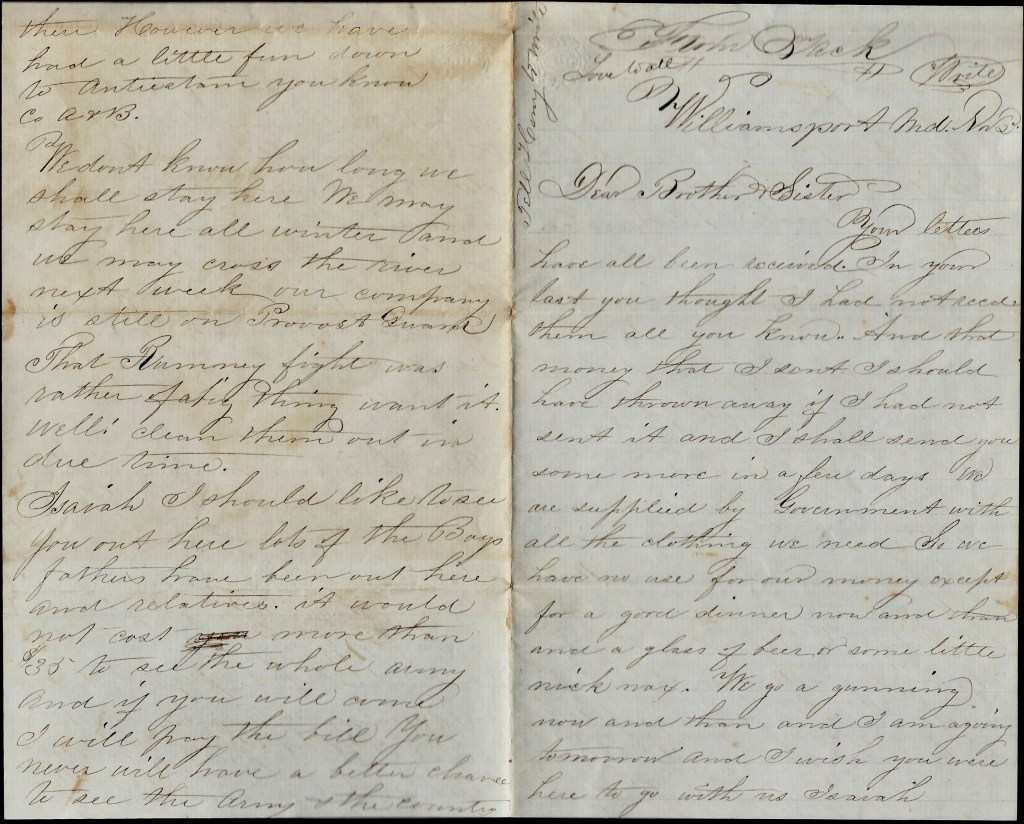 there However we have
had a little fun down
to Antieatam you know
Co A & B.
We dont know how long we
shall stay here We may
stay here all winter and
we may cross the river
next week our company
is still on Provost Guard
That Rummey fight was
rather thing want it.
well! clean them out in
due time.
Isaiah I should like to see
you out here lots of the Boys
fathers have been out here
and relatives. it would
not cost you more than
$35 to see the whole army
and if you will come
I will pay the bill You
never will have a better chance
to see the Army & the country
Tell Henry to write
Love to all
Write
Williamsport Md. Nov
Dear Brother & Sister
Your letters
have all been received. In your
last you thought I had not recd
them all you know. And that
money that I sent I should
have thrown away if I had not
sent it and I shall send you
some more in a few days We
are supplied by Government with
all the clothing we need So we
have no use for our money except
for a good dinner now and than
and a glass of beer or some little
nick nax. We go a gunning
now and than and I am agoing
tomorrow and I wish you were
here to go with us Isaiah